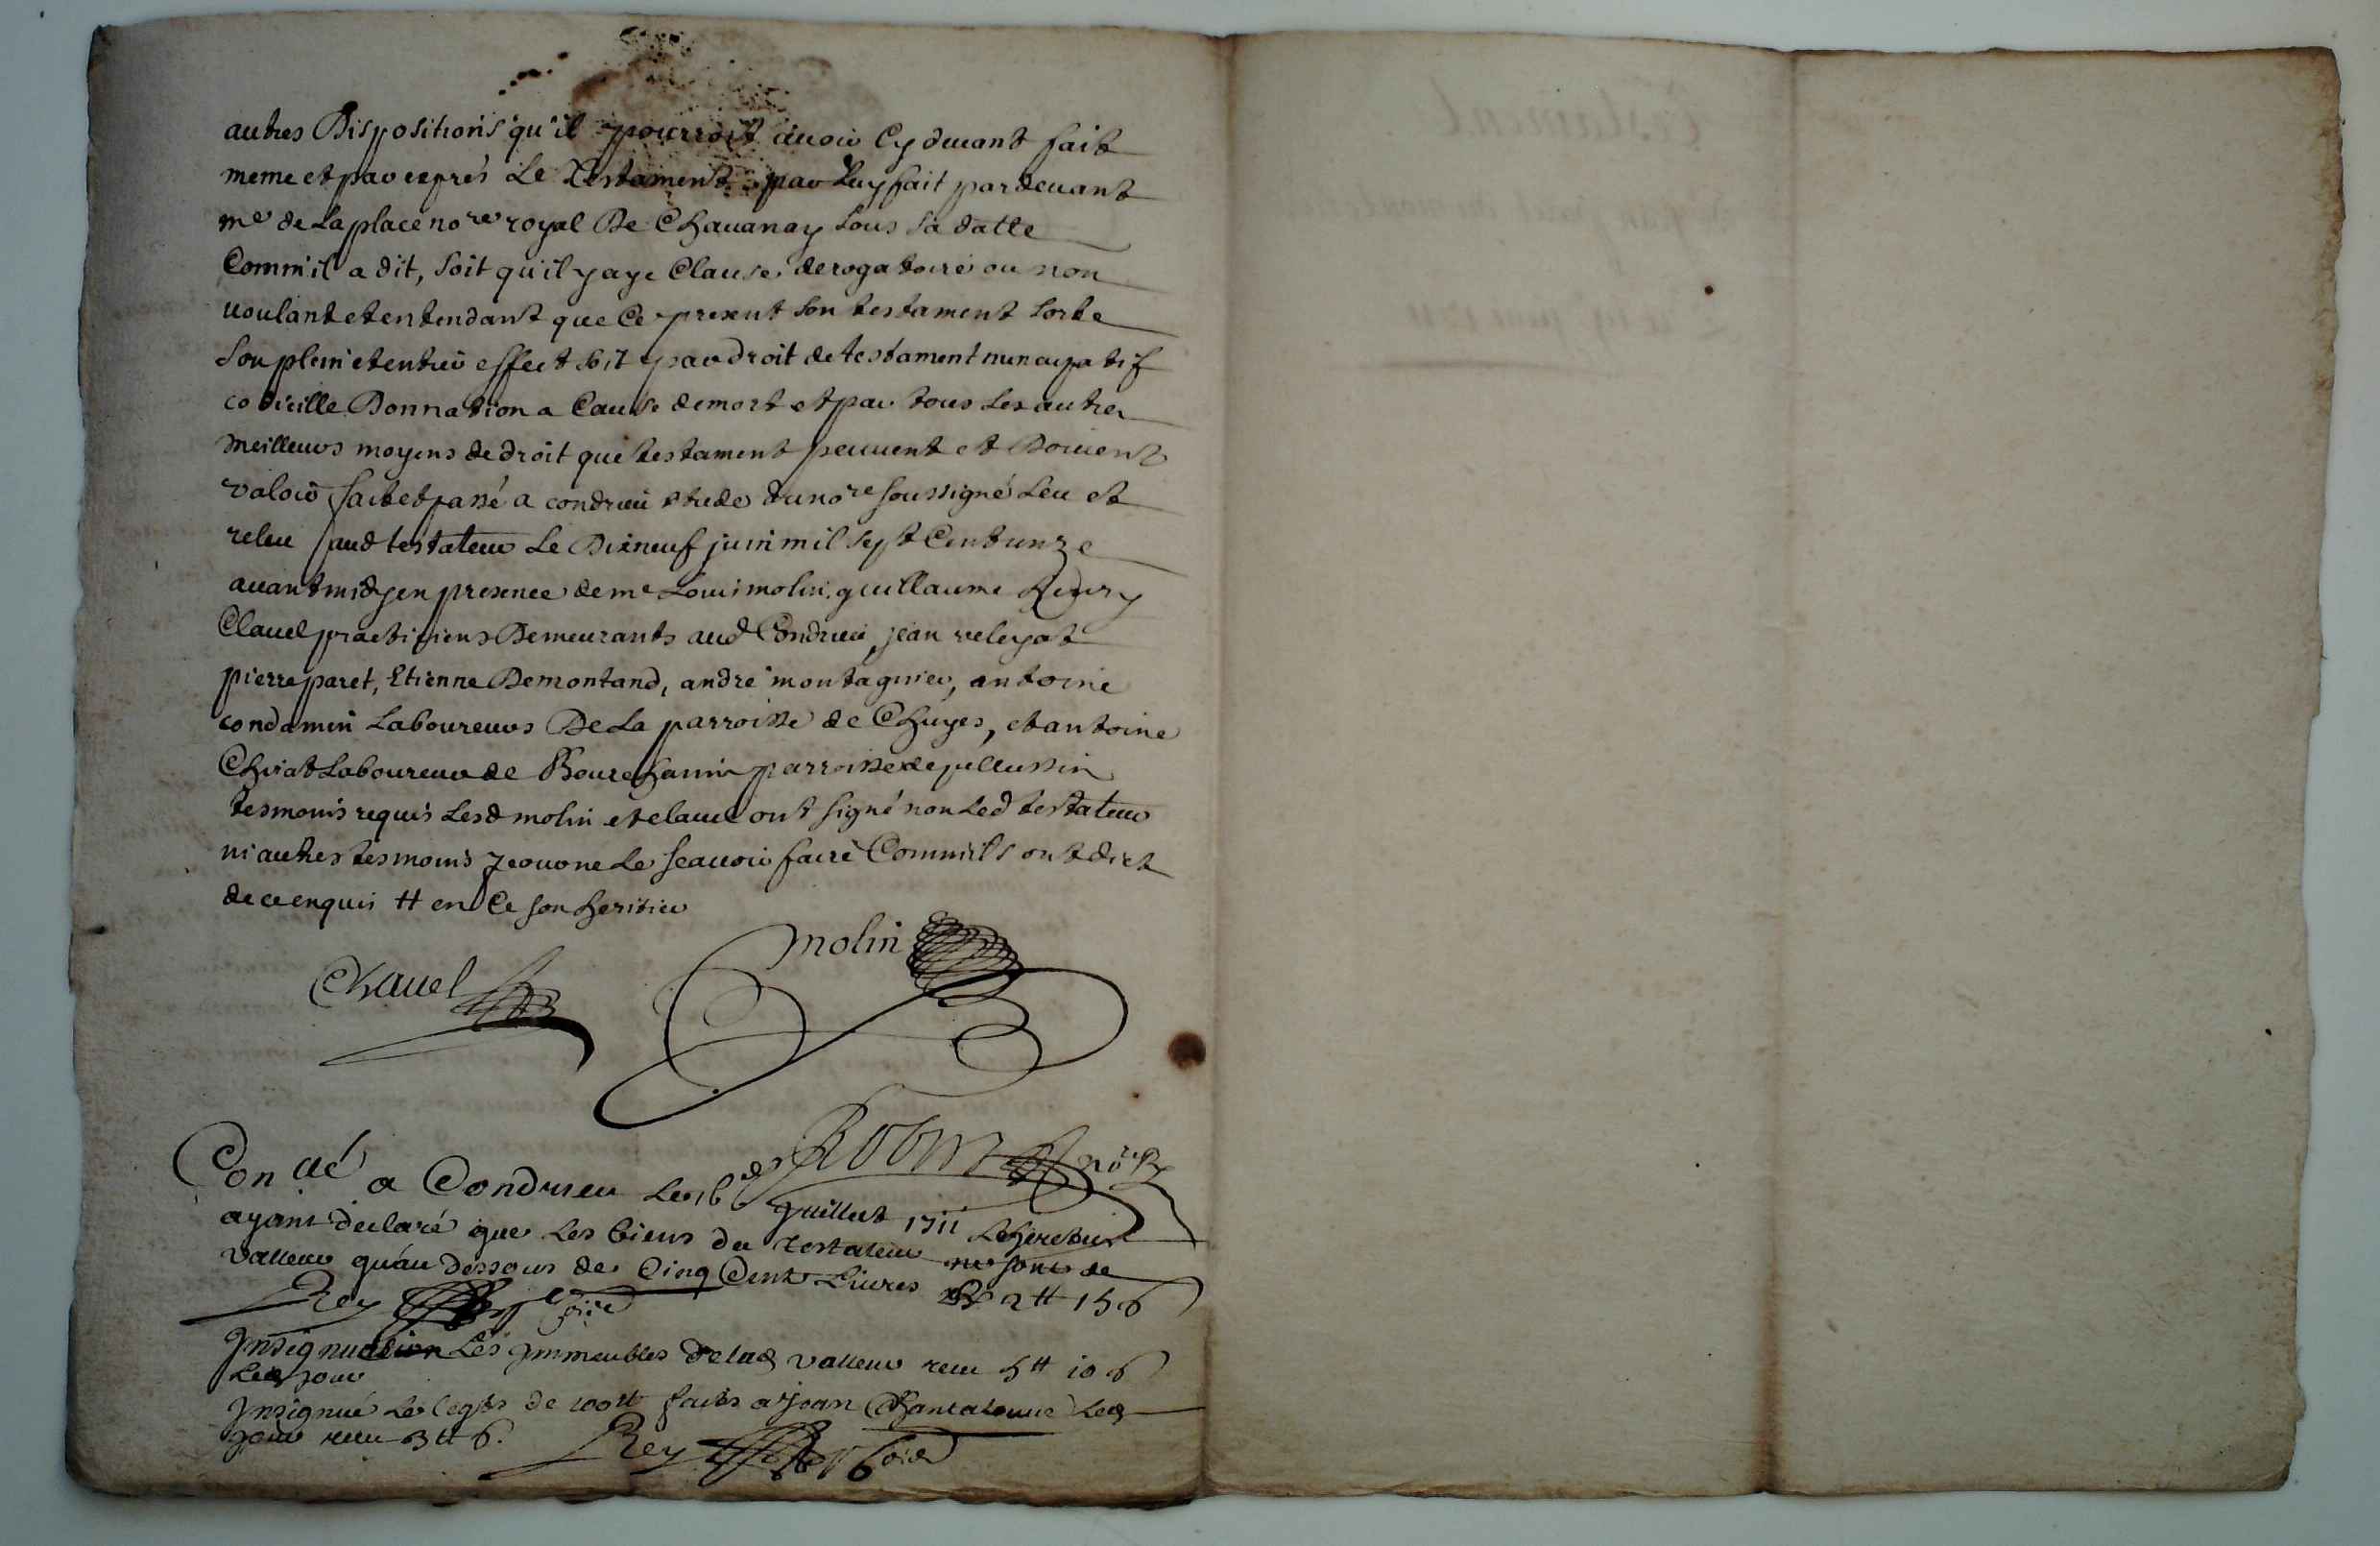 autres Dispositions qu'il pourroit auoir Cy deuant fait
meme et par exprés Le Testament par Luy fait pardeuant
me de Laplace nore royal De Chauanay sous sa datte
Comm'il a dit, soit qu'il y aye Clause derogatoire ou non
uoulant et entendant que Ce present son testament sorte
son plein et entier effect soit par droit de testament nuncupatif
codicille Donnation a Cause de mort et par tous Les autres
meilleurs moyens de droit que testament peuuent et Doiuent
valoir fait et passé a condrieu etude du nore soussigné Leu et
releu aud testateur Le Dixneuf juin mil sept Cent unze
auant midy en presence de me Louis molin, guillaume
Clauel practiciens Demeurants aud Condrieu, jean veleyat
pierre paret, Etienne Demontand, andré montagnier, antoine
condamin Laboureurs De La parroisse de Chuyes, et antoine
Laboureur de Bourchanin parroisse de pellussin
tesmoins requis Lesd molin et clauel ont signé non Led testateur
ni autres tesmoins pour ne Le scauoir faire Comm'ils ont dict
de ce enquis tt en Ce son heritier
molin
Clauel
Robin nore R
Con ué a Condrieu Le 16e juillet 1711 Le heretier
ayant declaré que Les biens du testateur ne sont de
valleur qu'au dessous de Cinq Cent Liures R 2tt 15 6
Rey
Insignuation Les immeubles de lad valleur receu 5tt 10 6
Led jour
Insignué Le legts de 100tt faits a jean Led
jour receu 3tt 6.
Rey